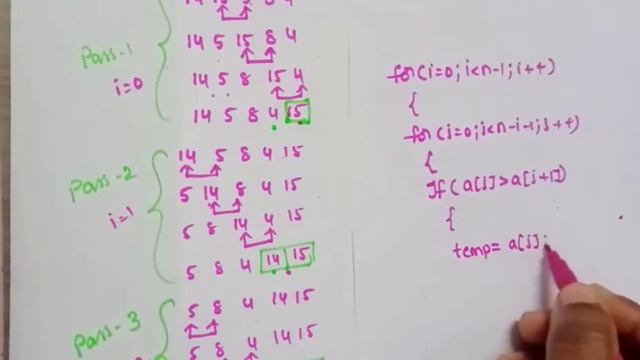 Pass-1
i=0
14 5 15 8 4
14 5 8 15 4
14 5 8 4 15
Pass-2
i=1
14 5 8 4 15
5 14 8 4 15
5 8 14 4 15
5 8 4 14 15
Pass-3
5 8 4 14 15
5 8 4 14 15
for(i=0;i<n-1;i++)
{
for(j=0;j<n-i-1;j++)
{
If(a[j]>a[j+1])
{
temp=a[j];